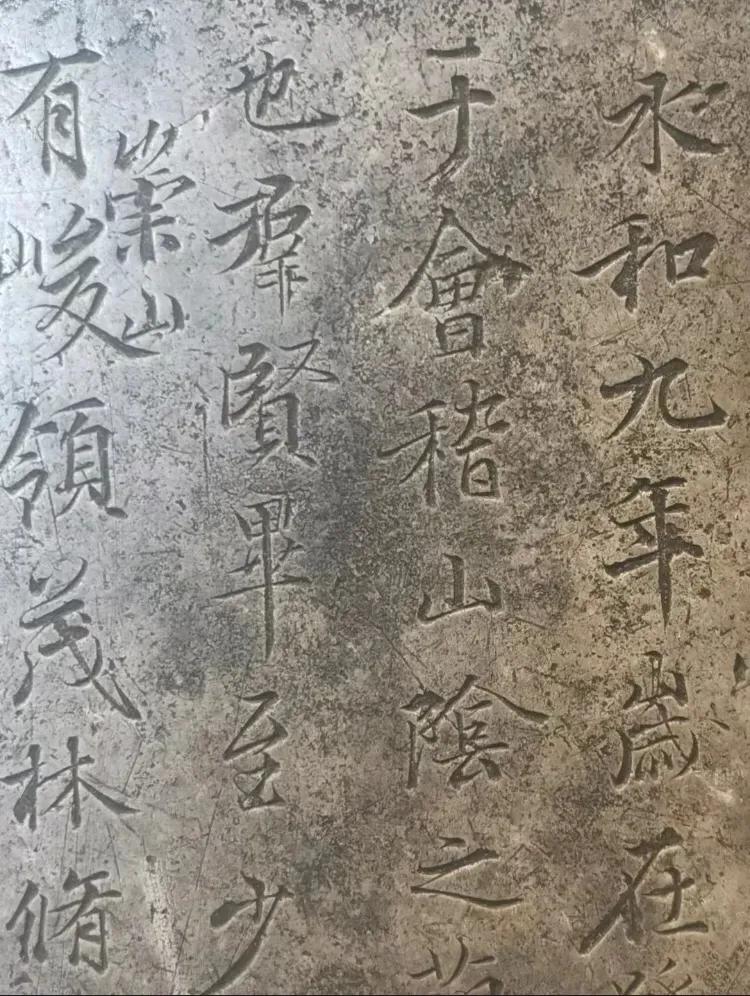 永和九年歲在
于會稽山陰之蘭
也羣賢畢至少
有崇山峻領茂林脩